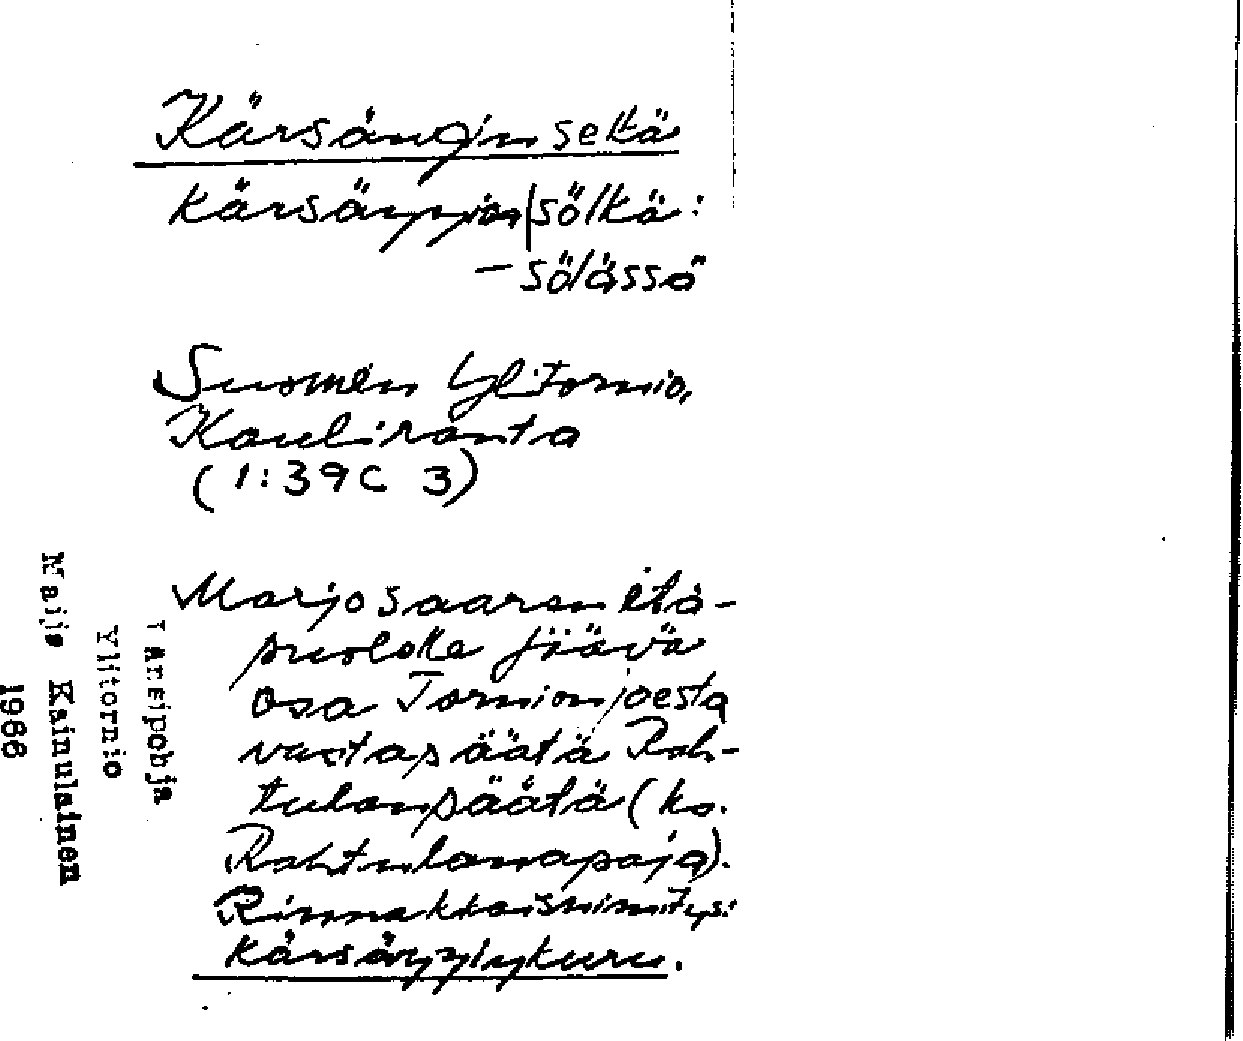 Kärsänginselkä
kärsäŋŋin|sölkä:
- sölässä
Suomen Ylitornio,
Kauliranta
(1:39C 3)
Marjosaaren etä-
puolelle jäävä
osa Tornionjoesta
vastapäätä Rah-
tulanpäätä (ks.
Rahtulanapaja).
Rinnakkaisnimitys:
kärsäŋŋiŋkuru.
Länsipohja
Ylitornio
Maija Kainulainen
1966